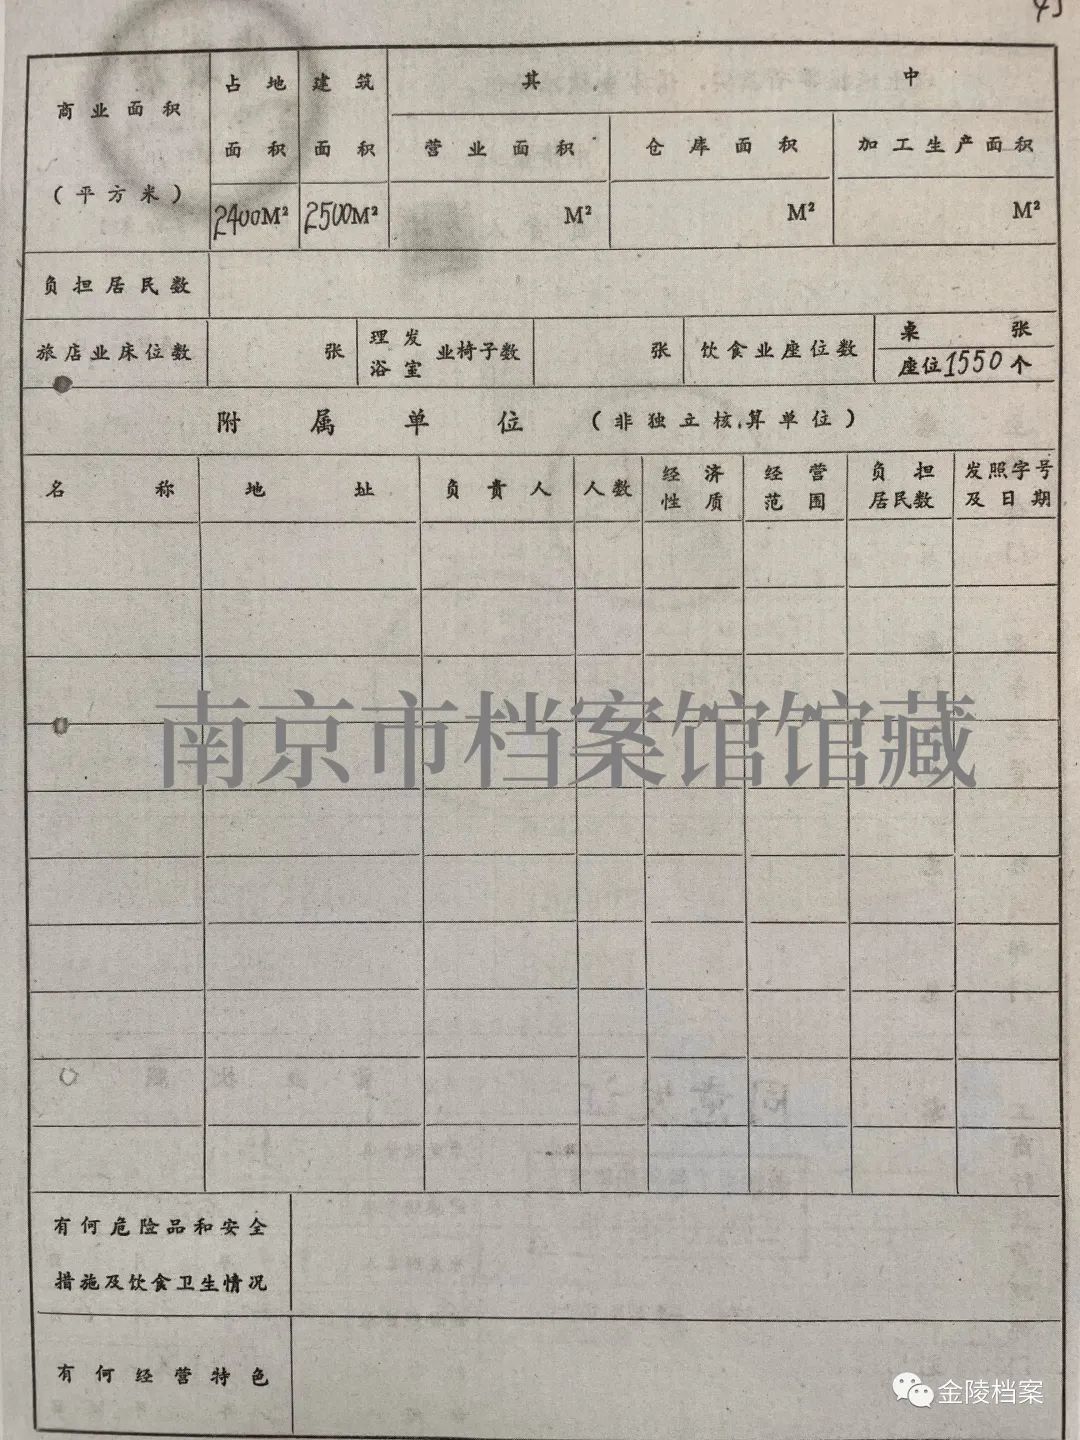 45
商业面积
(平方米)
占地
面积
建筑
面积
其中
营业面积
仓库面积
加工生产面积
2400M²
2500M²
M²
M²
M²
负担居民数
旅店业床位数
张
理发
浴室
业椅子数
张
饮食业座位数
桌 张
座位1550个
附属单位 (非独立核算单位)
名称
地址
负责人
人数
经济
性质
经营
范围
负担
居民数
发照字号
及日期
南京市档案馆馆藏
有何危险品和安全
措施及饮食卫生情况
有何经营特色
金陵档案